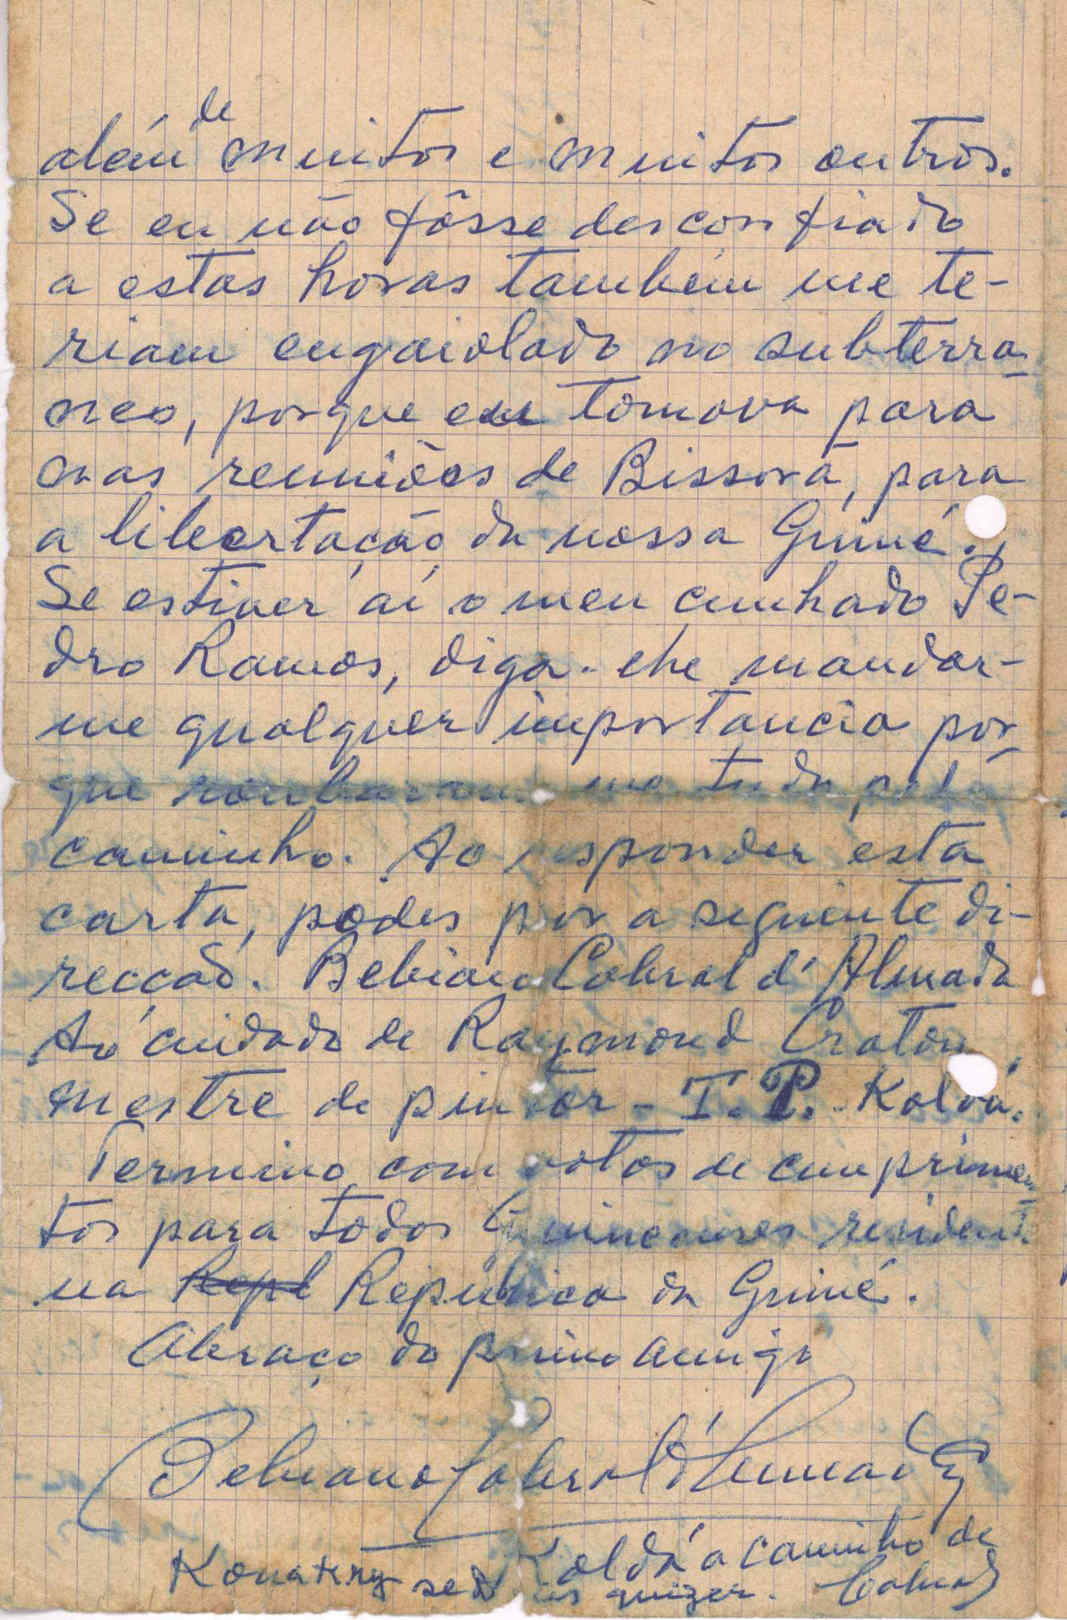 além de muitos e muitos outros.
Se eu não fôsse desconfiado
a estas horas também me te-
riam engaiolado no subterra-
neo, porque eu tomava para
nas reuniões de Bissorã, para
a libertação da nossa Guiné.
Se estiver aí o meu cunhado Pe-
dro Ramos, diga-lhe mandar-
me qualquer importancia por-
que roubaram-me tudo pelo
caminho. Ao responder esta
carta, podes pôr a seguinte di-
recção. Bebiano Cabral d'Almada
Ao cuidado de Raymond Craton,
mestre de pintor - T.P. Koldá.
Termino com votos de cumprimen-
tos para todos Guineenses resident.
na Repl República da Guiné.
Abraço do primo amigo
Bebiano Cabral d'Almada
Koldá a caminho de
Konakry se Deus quizer. Cabral